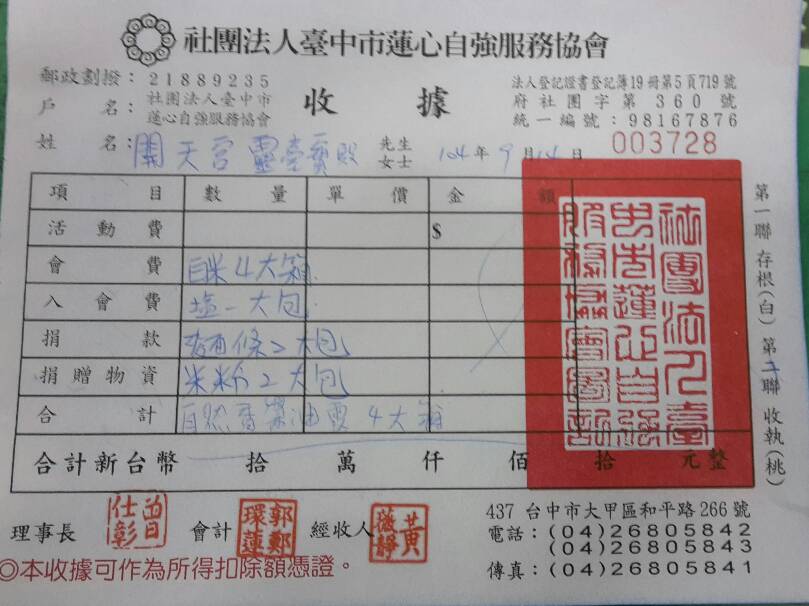 社團法人臺中市蓮心自強服務協會
郵政劃撥：21889235
戶名：社團法人臺中市蓮心自強服務協會
收據
法人登記證書登記簿19冊第5頁719號
府社團字第360號
統一編號：98167876
003728
姓名：開天宮靈壹寶殿 先生女士 104年9月14日
項目 數量 單價 金額
活動費 $
會費 白米4大箱
入會費 塩一大包
捐款 麵條2大包
捐贈物資 米粉2大包
合計 自然香 4大箱
合計新台幣 拾 萬 仟 佰 拾 元整
社團法人臺中市蓮心自強服務協會圖記
第一聯存根(白)第二聯收執(桃)
理事長 會計 郭鄭環蓮 經收人 黃
◎本收據可作為所得扣除額憑證。
437 台中市大甲區和平路266號
電話：(04)26805842
(04)26805843
傳真：(04)26805841